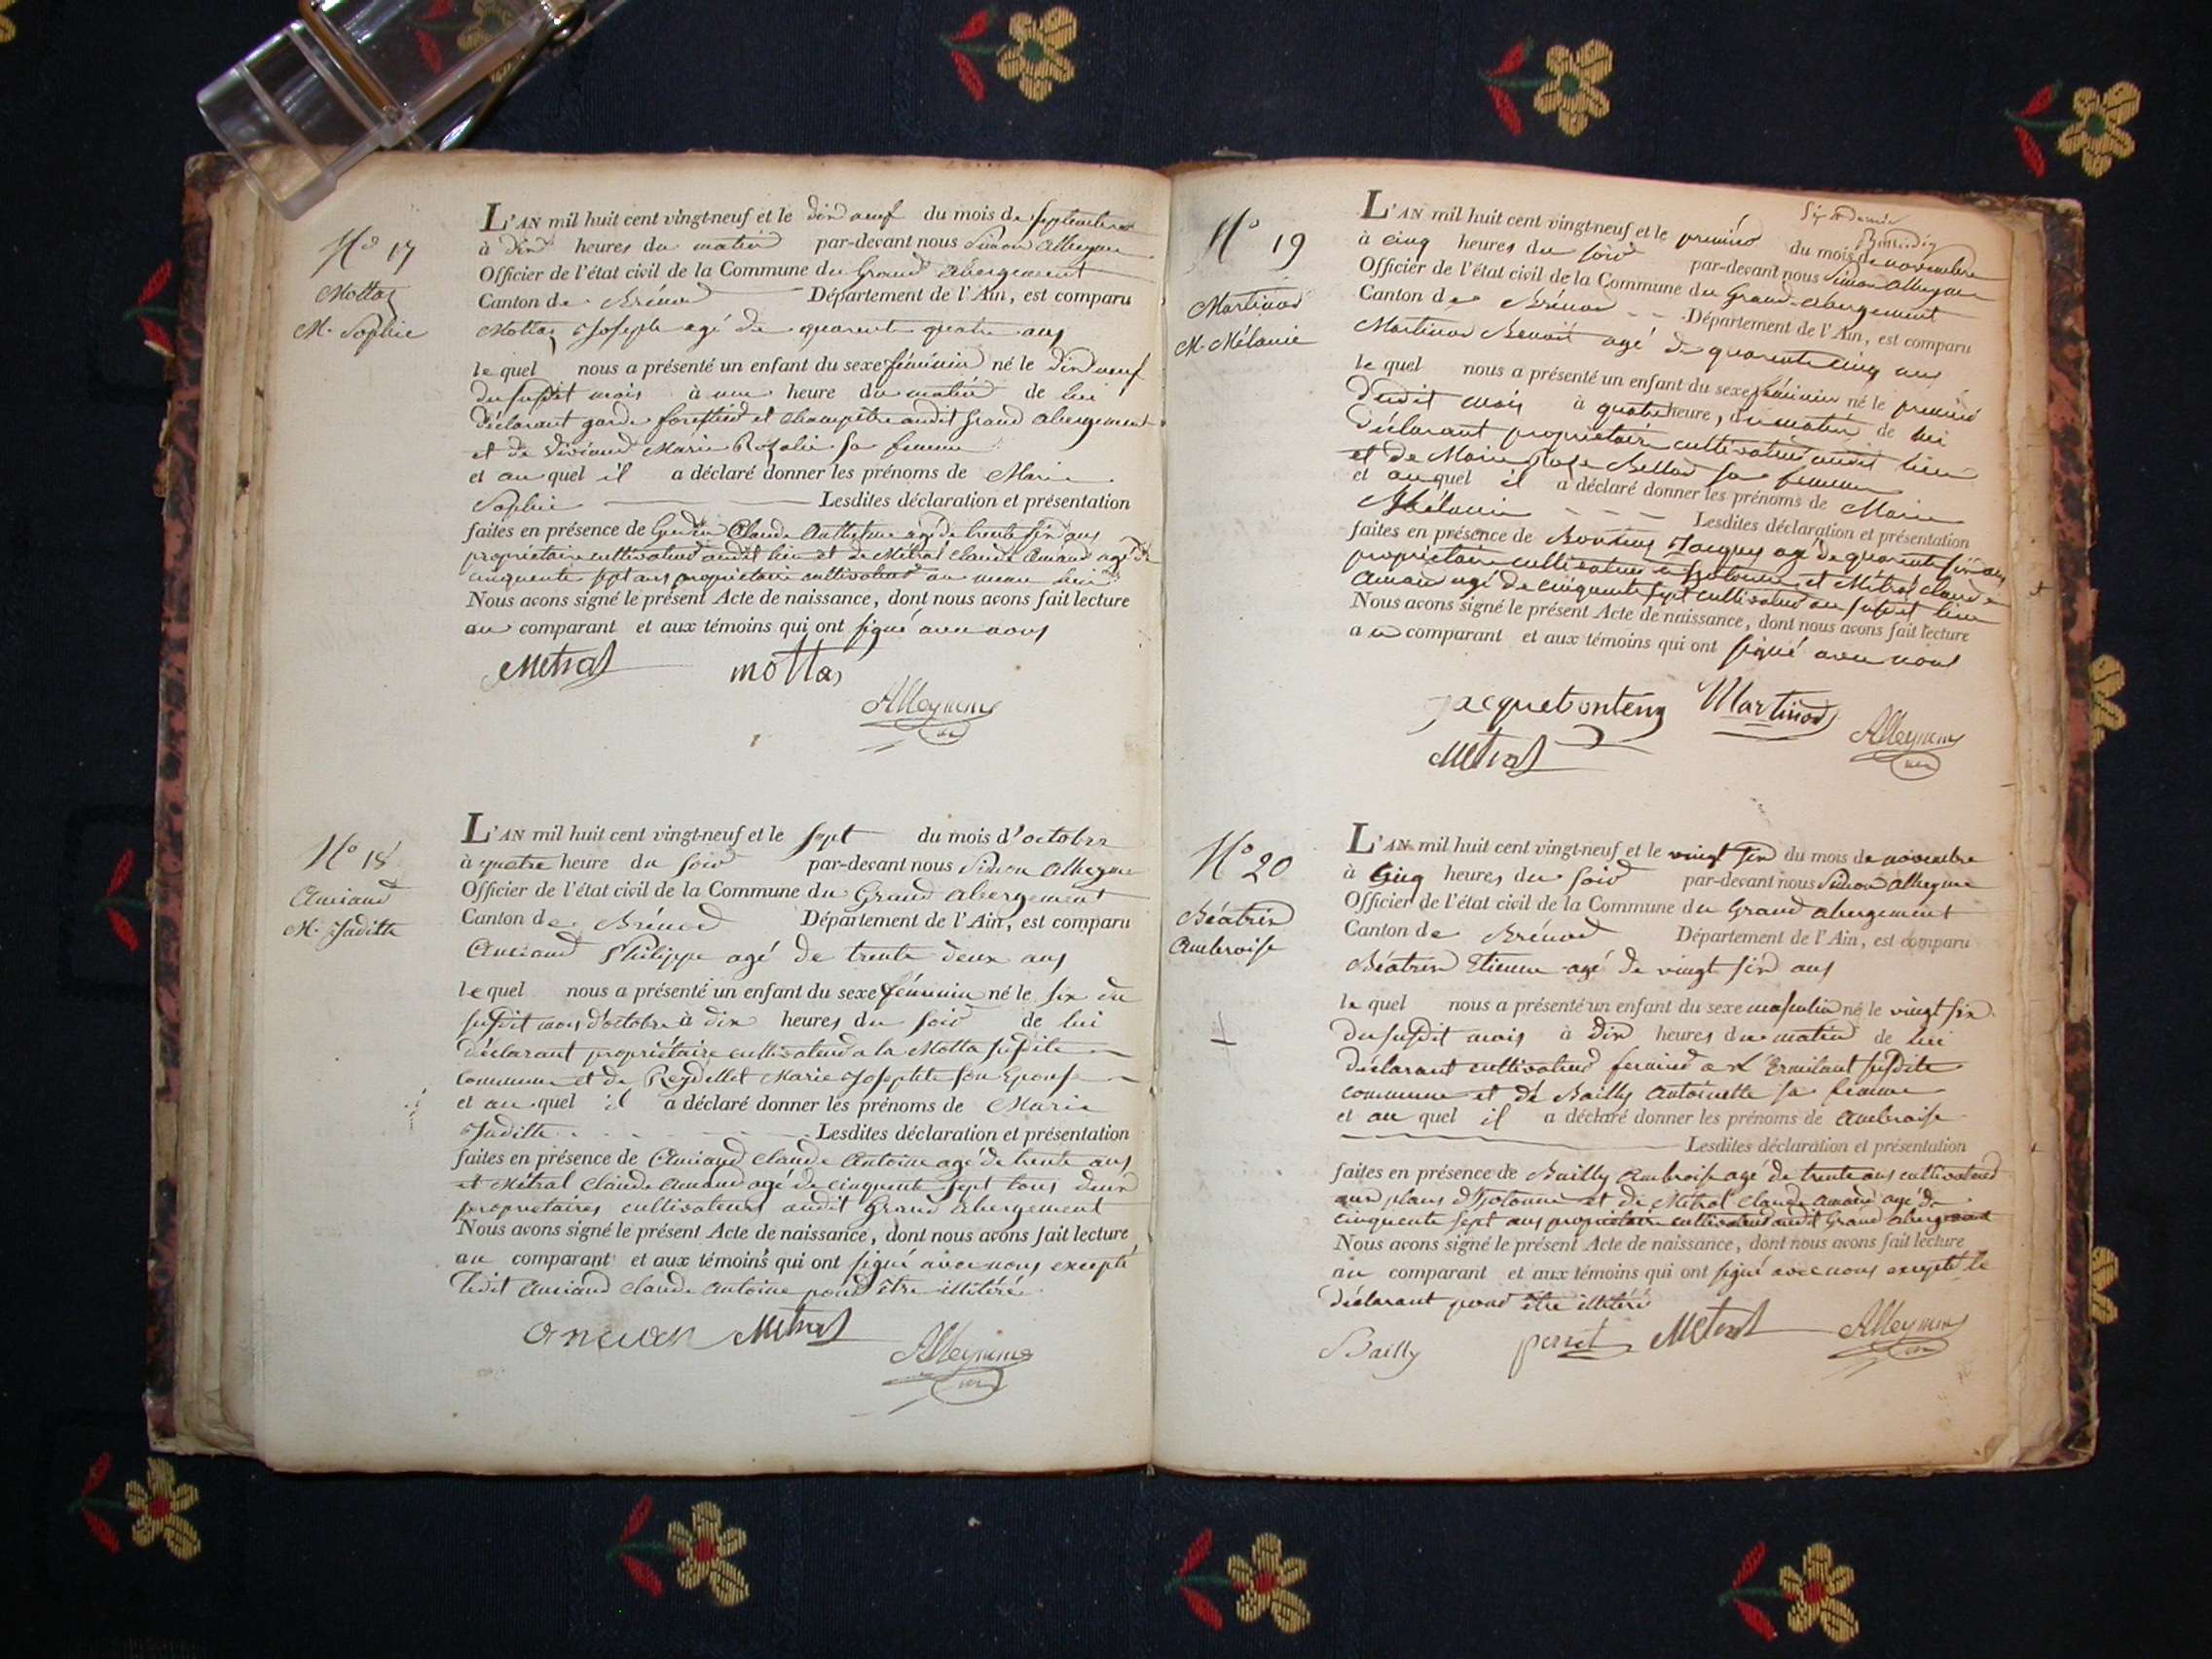 N° 17
Mottaz
M. Sophie
L'AN mil huit cent vingt-neuf et le dix neuf du mois de septembre
à dix heures du matin par-devant nous Simon Alleyme
Officier de l'état civil de la Commune du Grand abergement
Canton de Brénod Département de l'Ain, est comparu
Mottaz Joseph agé de quarente quatre ans
le quel nous a présenté un enfant du sexe féminin né le dix neuf
du susdit mois à une heure du matin de lui
déclarant garde forestier et champêtre audit Grand abergement
et de Marie Rosalie sa femme
et au quel il a déclaré donner les prénoms de Marie
Sophie Lesdites déclaration et présentation
faites en présence de Claude Anthelme agé de trente six ans
propriétaire cultivateur audit lieu et de Métral Claude Amand agé de
cinquente sept ans propriétaire cultivateur au meme lieu
Nous avons signé le présent Acte de naissance, dont nous avons fait lecture
au comparant et aux témoins qui ont signé avec nous
Metral mottas
Alleyme
N° 18
Anciand
M. Juditte
L'AN mil huit cent vingt-neuf et le sept du mois d'octobre
à quatre heure du soir par-devant nous Simon Alleyme
Officier de l'état civil de la Commune du Grand abergement
Canton de Brénod Département de l'Ain, est comparu
Anciand Philippe agé de trente deux ans
le quel nous a présenté un enfant du sexe féminin né le six du
susdit mois d'octobre à dix heures du soir de lui
déclarant propriétaire cultivateur a la Motta susdite
commune et de Reydellet Marie Josephte son Epouse
et au quel il a déclaré donner les prénoms de Marie
Juditte Lesdites déclaration et présentation
faites en présence de Anciand Claude Antoine agé de trente ans
et Métral Claude Amand agé de cinquente sept tous deux
propriétaires cultivateurs audit Grand abergement
Nous avons signé le présent Acte de naissance, dont nous avons fait lecture
au comparant et aux témoins qui ont signé avec nous excepté
ledit Anciand Claude Antoine pour être illitéré
Metral
Alleyme
N° 19
Martinod
M. Mélanie
L'AN mil huit cent vingt-neuf et le premier du mois de novembre
à cinq heures du soir par-devant nous Simon Alleyme
Officier de l'état civil de la Commune du Grand-abergement
Canton de Brénod Département de l'Ain, est comparu
Martinod Benoit agé de quarente cinq ans
le quel nous a présenté un enfant du sexe féminin né le premier
dudit mois à quatre heure, du matin de lui
déclarant propriétaire cultivateur audit lieu
et de Marie Rose Bellod sa femme
et au quel il a déclaré donner les prénoms de Marie
Mélanie Lesdites déclaration et présentation
faites en présence de Jacques agé de quarente six ans
propriétaire cultivateur et Métral Claude
Amand agé de cinquente sept cultivateur au susdit lieu
Nous avons signé le présent Acte de naissance, dont nous avons fait lecture
au comparant et aux témoins qui ont signé avec nous
Martinod
Alleyme
Metral
N° 20
Béatrix
Ambroise
L'AN mil huit cent vingt-neuf et le vingt six du mois de novembre
à Cinq heures du soir par-devant nous Simon Alleyme
Officier de l'état civil de la Commune du Grand abergement
Canton de Brénod Département de l'Ain, est comparu
Béatrix Etienne agé de vingt six ans
le quel nous a présenté un enfant du sexe masculin né le vingt six
du susdit mois à dix heures du matin de lui
déclarant cultivateur fermier a susdite
commune et de Bailly Antoinette sa femme
et au quel il a déclaré donner les prénoms de Ambroise
Lesdites déclaration et présentation
faites en présence de Bailly Ambroise agé de trente ans cultivateur
aux plans d'hotonne et de Métral Claude Amand agé de
cinquente sept ans propriétaire cultivateur audit Grand abergement
Nous avons signé le présent Acte de naissance, dont nous avons fait lecture
au comparant et aux témoins qui ont signé avec nous excepté le
déclarant pour être illitéré
Bailly perret Metral Alleyme